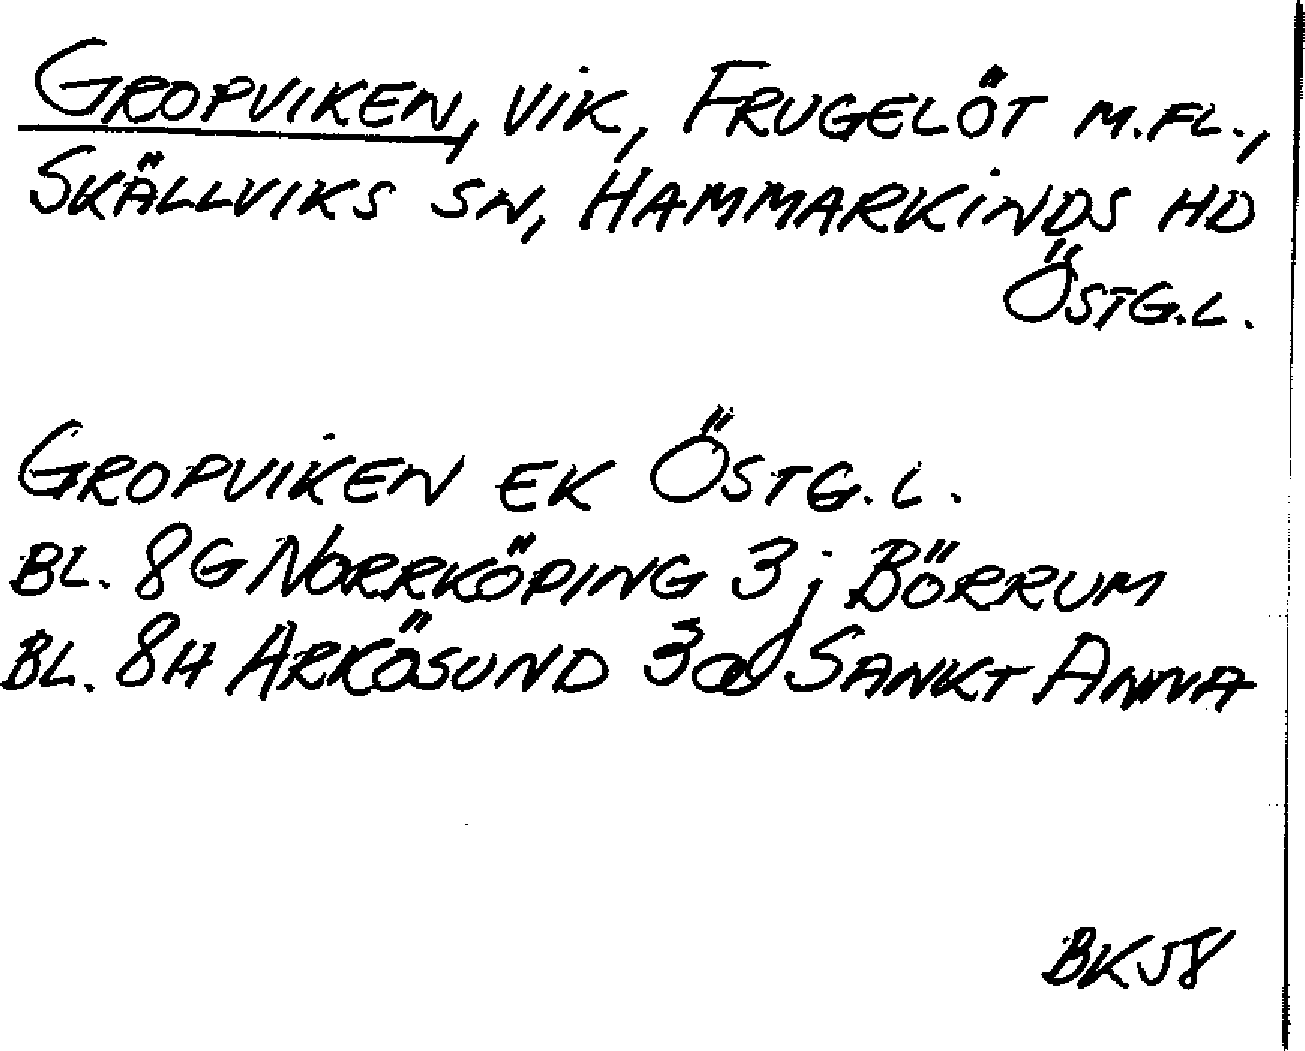 GROPVIKEN, VIK, FRUGELÖT M.FL.,
SKÄLLVIKS SN, HAMMARKINDS HD
ÖSTG.L.
GROPVIKEN EK ÖSTG.L.
BL. 8G NORRKÖPING 3j BÖRRUM
BL. 8H ARKÖSUND 3a SANKT ANNA
BK58